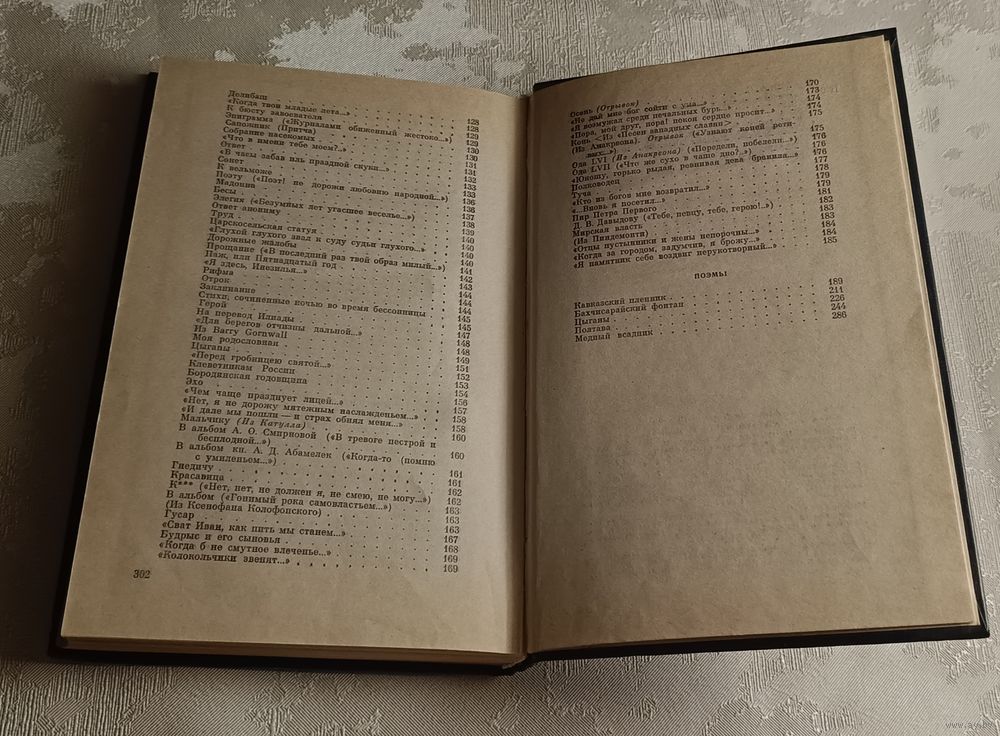 Делибаш
«Когда твои младые лета...» 128
К бюсту завоевателя 128
Эпиграмма («Журналами обиженный жестоко...») 129
Сапожник (Притча) 129
Собрание насекомых 130
«Что в имени тебе моем?..» 130
Ответ 131
«В часы забав иль праздной скуки...» 131
Сонет 132
К вельможе 133
Поэту («Поэт! не дорожи любовию народной...») 133
Мадонна 136
Бесы 136
Элегия («Безумных лет угасшее веселье...») 137
Ответ анониму 138
Труд 139
Царскосельская статуя 140
«Глухой глухого звал к суду судьи глухого...» 140
Дорожные жалобы 140
Прощание («В последний раз твой образ милый...») 141
Паж, или Пятнадцатый год 142
«Я здесь, Инезилья...» 143
Рифма 144
Отрок 144
Заклинание 144
Стихи, сочиненные ночью во время бессонницы 145
Герой 145
На перевод Илиады 147
«Для берегов отчизны дальной...» 148
Из Barry Cornwall 148
Моя родословная 149
Цыганы 151
«Перед гробницею святой...» 152
Клеветникам России 153
Бородинская годовщина 154
Эхо 156
«Чем чаще празднует лицей...» 157
«Нет, я не дорожу мятежным наслажденьем...» 158
«И дале мы пошли — и страх обнял меня...» 158
Мальчику (Из Катулла) 160
В альбом А. О. Смирновой («В тревоге пестрой и
бесплодной...») 160
В альбом кн. А. Д. Абамелек («Когда-то (помню
с умиленьем...») 161
Гнедичу 161
Красавица 162
К*** («Нет, нет, не должен я, не смею, не могу...») 162
В альбом («Гонимый рока самовластьем...») 163
(Из Ксенофана Колофонского) 163
Гусар 163
«Сват Иван, как пить мы станем...» 167
Будрыс и его сыновья 168
«Когда б не смутное влеченье...» 169
«Колокольчики звенят...» 169
302
Осень (Отрывок) 170
«Не дай мне бог сойти с ума...» 173
«Я возмужал среди печальных бурь...» 174
«Пора, мой друг, пора! покоя сердце просит...» 174
Конь <Из «Песен западных славян»> 175
(Из Анакреона). Отрывок («Узнают коней рети-
вых...») 175
Ода LVI (Из Анакреона) («Поредели, побелели...») 176
Ода LVII («Что же сухо в чаше дно?..») 176
«Юношу, горько рыдая, ревнивая дева бранила...» 176
Полководец 177
Туча 178
«Кто из богов мне возвратил...» 179
«...Вновь я посетил...» 179
Пир Петра Первого 181
Д. В. Давыдову («Тебе, певцу, тебе, герою!..») 182
Мирская власть 183
(Из Пиндемонти) 183
«Отцы пустынники и жены непорочны...» 184
«Когда за городом, задумчив, я брожу...» 184
«Я памятник себе воздвиг нерукотворный...» 185
ПОЭМЫ
Кавказский пленник 189
Бахчисарайский фонтан 211
Цыганы 226
Полтава 244
Медный всадник 286